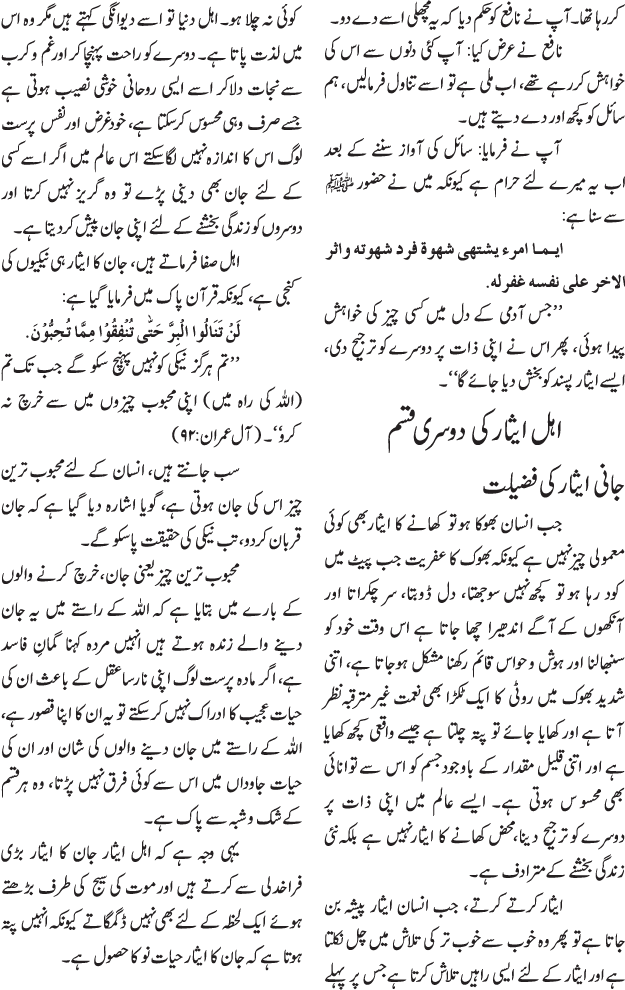 کر رہا تھا۔ آپ نے نافع کو حکم دیا کہ یہ مچھلی اسے دے دو۔
نافع نے عرض کیا: آپ کئی دنوں سے اس کی
خواہش کر رہے تھے، اب ملی ہے تو اسے تناول فرمالیں، ہم
سائل کو کچھ اور دے دیتے ہیں۔
آپ نے فرمایا: سائل کی آواز سننے کے بعد
اب یہ میرے لئے حرام ہے کیونکہ میں نے حضور ﷺ
سے سنا ہے:
ایـمـا امرء یشتھی شھوۃ فرد شھوتہ واثر
الاخر علی نفسہ غفرلہ.
’’جس آدمی کے دل میں کسی چیز کی خواہش
پیدا ہوئی، پھر اس نے اپنی ذات پر دوسرے کو ترجیح دی،
ایسے ایثار پسند کو بخش دیا جائے گا‘‘۔
اہل ایثار کی دوسری قسم
جانی ایثار کی فضیلت
جب انسان بھوکا ہو تو کھانے کا ایثار بھی کوئی
معمولی چیز نہیں ہے کیونکہ بھوک کا عفریت جب پیٹ میں
کود رہا ہو تو کچھ نہیں سوجھتا، دل ڈوبتا، سر چکراتا اور
آنکھوں کے آگے اندھیرا چھا جاتا ہے اس وقت خود کو
سنبھالنا اور ہوش و حواس قائم رکھنا مشکل ہو جاتا ہے، اتنی
شدید بھوک میں روٹی کا ایک ٹکڑا بھی نعمت غیر مترقبہ نظر
آتا ہے اور کھایا جائے تو پتہ چلتا ہے جیسے واقعی کچھ کھایا
ہے اور اتنی قلیل مقدار کے باوجود جسم کو اس سے توانائی
بھی محسوس ہوتی ہے۔ ایسے عالم میں اپنی ذات پر
دوسرے کو ترجیح دینا، محض کھانے کا ایثار نہیں ہے بلکہ نئی
زندگی بخشنے کے مترادف ہے۔
ایثار کرتے کرتے، جب انسان ایثار پیشہ بن
جاتا ہے تو پھر وہ خوب سے خوب تر کی تلاش میں چل نکلتا
ہے اور ایثار کے لئے ایسی راہیں تلاش کرتا ہے جس پر پہلے
کوئی نہ چلا ہو۔ اہل دنیا تو اسے دیوانگی کہتے ہیں مگر وہ اس
میں لذت پاتا ہے۔ دوسرے کو راحت پہنچا کر اور غم و کرب
سے نجات دلا کر اسے ایسی روحانی خوشی نصیب ہوتی ہے
جسے صرف وہی محسوس کر سکتا ہے، خود غرض اور نفس پرست
لوگ اس کا اندازہ نہیں لگا سکتے اس عالم میں اگر اسے کسی
کے لئے جان بھی دینی پڑے تو وہ گریز نہیں کرتا اور
دوسروں کو زندگی بخشنے کے لئے اپنی جان پیش کر دیتا ہے۔
اہل صفا فرماتے ہیں، جان کا ایثار ہی نیکیوں کی
کنجی ہے، کیونکہ قرآن پاک میں فرمایا گیا ہے:
لَنْ تَنَالُوا الْبِرَّ حَتّٰی تُنْفِقُوْا مِمَّا تُحِبُّوْنَ.
’’تم ہرگز نیکی کو نہیں پہنچ سکو گے جب تک تم
(اللہ کی راہ میں) اپنی محبوب چیزوں میں سے خرچ نہ
کرو‘‘۔ (آل عمران:۹۲)
سب جانتے ہیں، انسان کے لئے محبوب ترین
چیز اس کی جان ہوتی ہے، گویا اشارہ دیا گیا ہے کہ جان
قربان کر دو، تب نیکی کی حقیقت پا سکو گے۔
محبوب ترین چیز یعنی جان، خرچ کرنے والوں
کے بارے میں بتایا ہے کہ اللہ کے راستے میں یہ جان
دینے والے زندہ ہوتے ہیں انہیں مردہ کہنا گمانِ فاسد
ہے، اگر مادہ پرست لوگ اپنی نارسا عقل کے باعث ان کی
حیات عجیب کا ادراک نہیں کر سکتے تو یہ ان کا اپنا قصور ہے،
اللہ کے راستے میں جان دینے والوں کی شان اور ان کی
حیات جاوداں میں اس سے کوئی فرق نہیں پڑتا، وہ ہر قسم
کے شک و شبہ سے پاک ہے۔
یہی وجہ ہے کہ اہل ایثار جان کا ایثار بڑی
فراخدلی سے کرتے ہیں اور موت کی سیج کی طرف بڑھتے
ہوئے ایک لحظہ کے لئے بھی نہیں ڈگمگاتے کیونکہ انہیں پتہ
ہوتا ہے کہ جان کا ایثار حیات نو کا حصول ہے۔